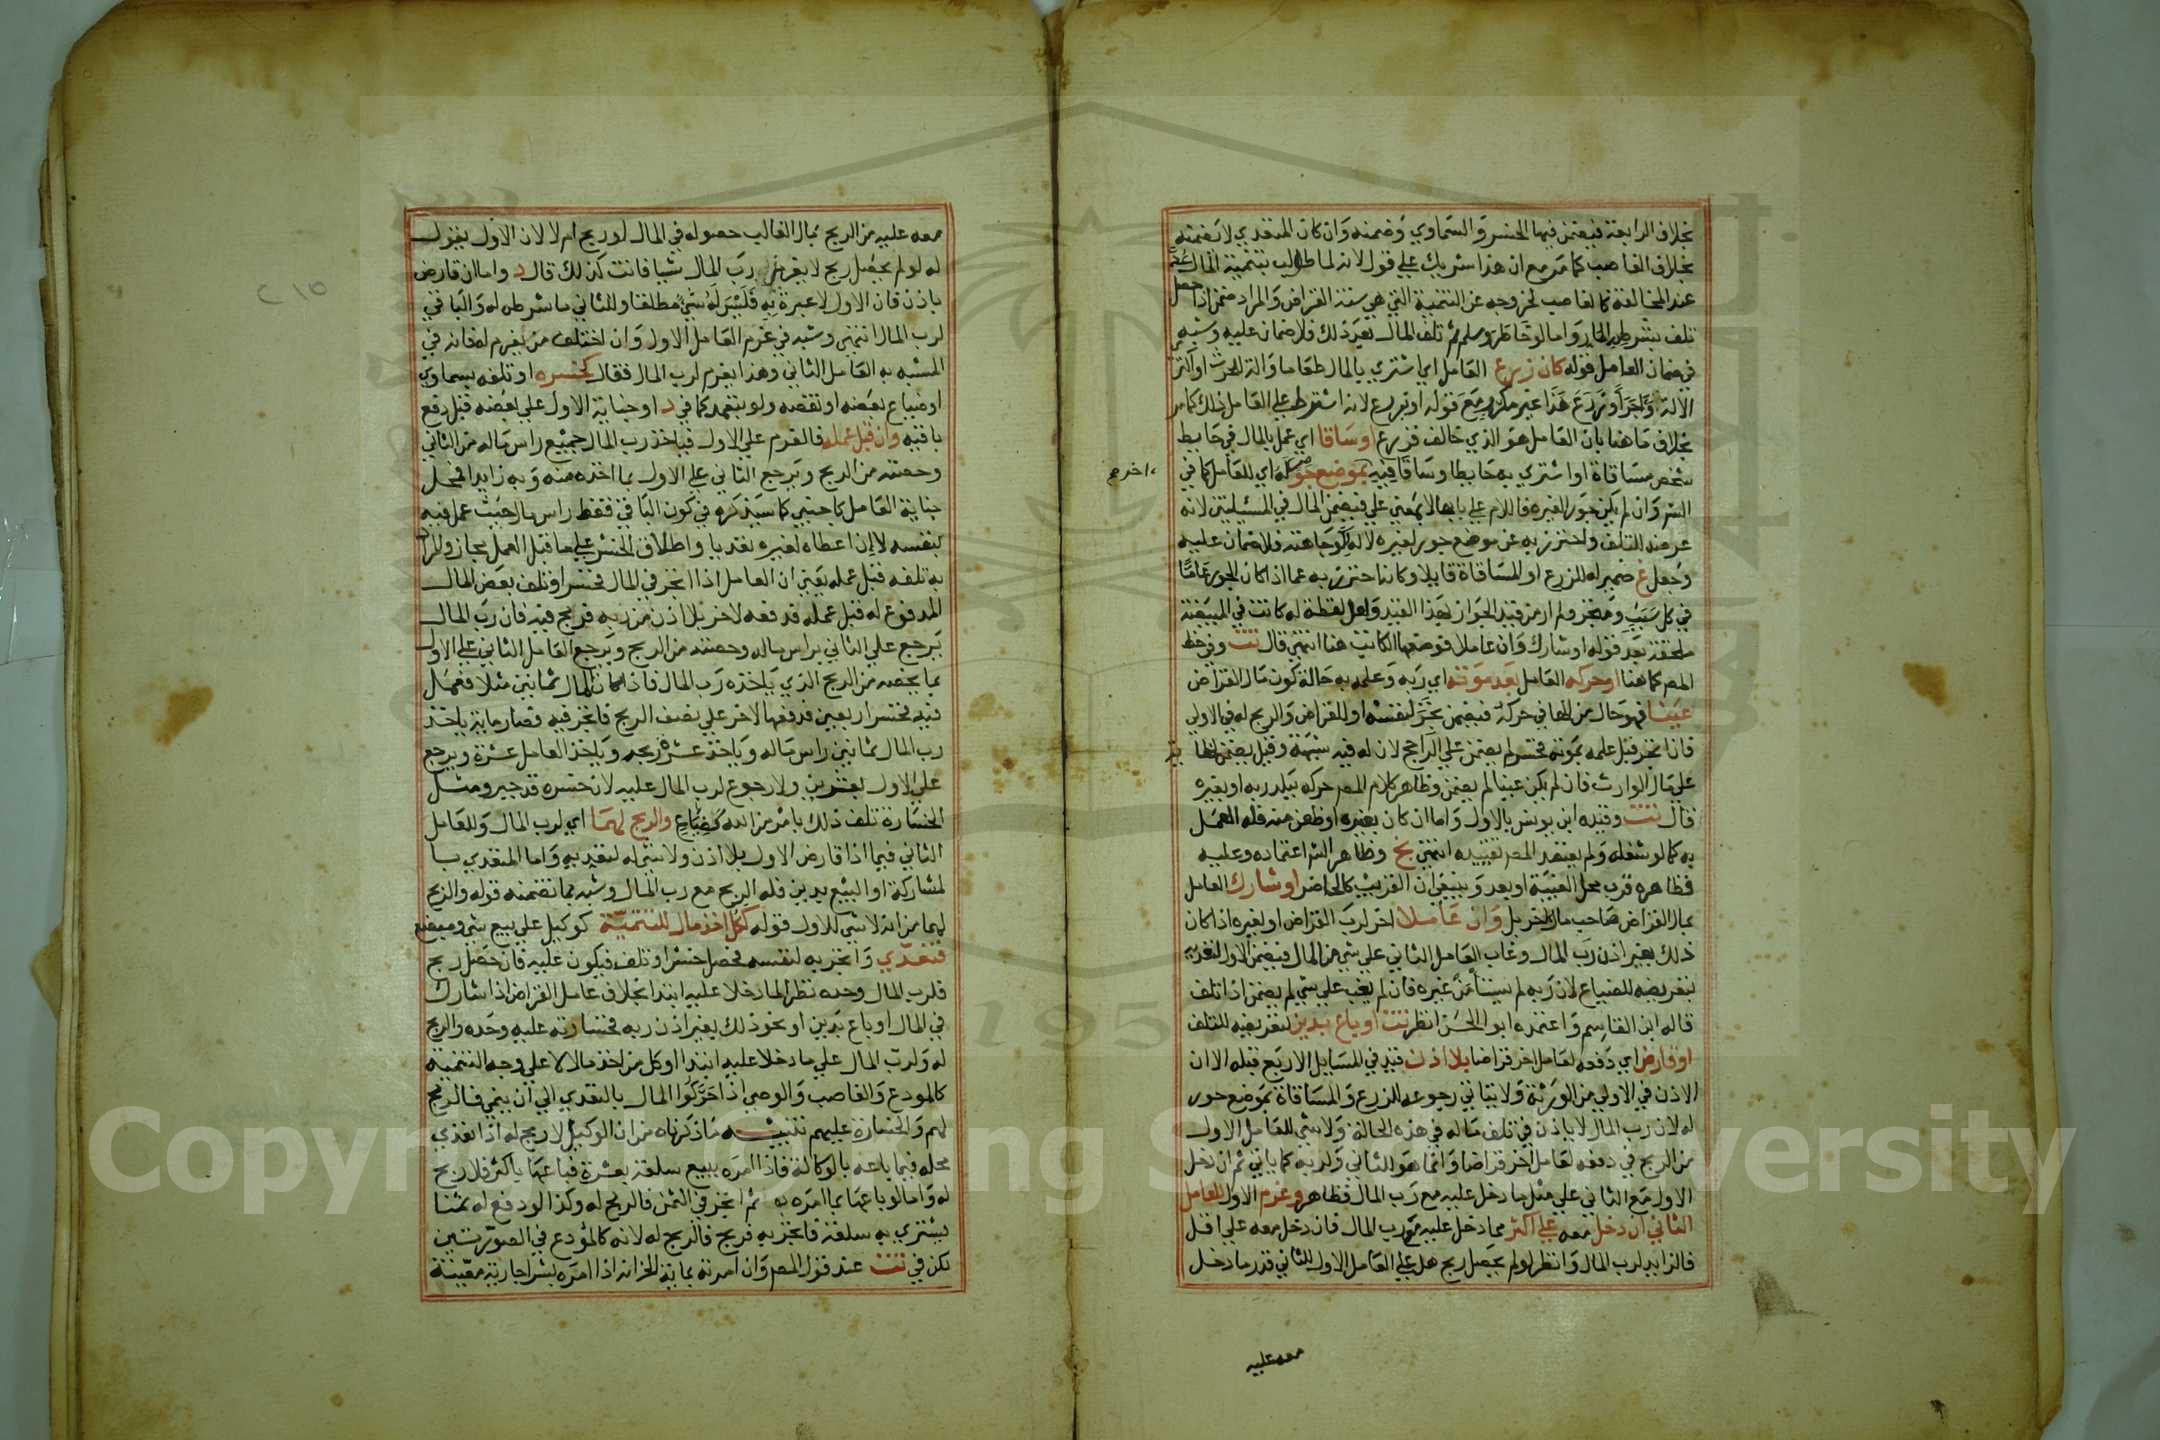 بخلاف الرابعة فيضمن فيها الخسر والسماوي وضمنه وان كان المتعدي لا يضمنه
بخلاف الغاصب كما مر مع ان هذا شريك علي قول لانه لما طولب بتنمية المال ضمن
عند المخالفة كالغاصب لخروجه عن التنمية التي هي سنة القراض والمراد ضمن اذا حصل
تلف بشرطه الخ واما لو خاطر وسلم ثم تلف المال بعد ذلك فلا ضمان عليه وشبه
في ضمان العامل قوله كان زرع العامل اي اشتري بالمال طعاما والة للحرث او اكترى
الالة وأجرأ ويزدرع هذا غير مكرر مع قوله او يزرع لانه اشترط علي العامل ذلك كما مر
بخلاف ما هنا بان العامل هو الذي خالف فزرع او ساقا اي عمل بالمال في حايط
شخص مساقاة او اشتري به حايطا وساقا فيه بموضع جور له اي للعامل كما في
الشر وان لم يكن جور الغيره فاللام علي بابها لا بمعني علي فيضمن المال في المسئلتين لانه
عرضه للتلف واحترز به عن موضع جور لغيره لا له لوجاهته فلا ضمان عليه
وجعل غ ضمير له للزرع او المساقاة قايلا وكانه احترز به عما اذا كان الجور عاما
في كل سبب ومتجر ولم ار من قيد الجواز بهذا القيد ولعل لفظة له كانت في المبيضة
ملحقة بعد قوله او شارك وان عاملا فوضعها الكاتب هنا انتهي قال تت وفي خط
المص كما هنا او حركه العامل بعد موته اي ربه وعلمه به حالة كون مال القراض
عينا فهو حال من الها في حركه فيضمن تجر لنفسه او للقراض والربح له في الاولي
فان اتجر قبل علمه بموته فخسر لم يضمن علي الراجح لان له فيه شبهة وقيل يضمن لخطايه
علي مال الوارث فان لم يكن عينا لم يضمن وظاهر كلام المص حركه ببلد ربه او بغيره
قال تت وقيده ابن يونس بالاول واما ان كان بغيره او ظعن منه فله العمل
به كما لو شغله ولم يعتمد المص تقييده انتهي بخ وظاهر الشر اعتماده وعليه
فظاهره قرب محل الغيبة او بعد وينبغي ان القريب كالحاضر او شارك العامل
بمال القراض صاحب مال اخر بل وان عاملا اخر لرب القراض او لغيره اذا كان
ذلك بغير اذن رب المال وغاب العامل الثاني علي شي من المال فيضمن الاول لتعديه
بتعريضه للضياع لان ربه لم يستأمن غيره فان لم يغب علي شي لم يضمن اذا تلف
قاله ابن القاسم واعتمده ابو الحسن انظر تت او باع بدين لتعريضه للتلف
او قارض اي دفعه لعامل اخر قراضا بلا اذن قيد في المسايل الاربع قبله الا ان
الاذن في الاولي من الورثة ولا يتاتي رجوعه للزرع والمساقاة بموضع جور
له لان رب المال لا ياذن في تلف ماله في هذه الحالة ولا شي للعامل الاول
من الربح في دفعه لعامل اخر قراضا وانما هو للثاني ولربه كما ياتي ثم ان دخل
الاول مع الثاني علي مثل ما دخل عليه مع رب المال فظاهر وغرم الاول للعامل
الثاني ان دخل معه علي اكثر مما دخل عليه مع رب المال فان دخل معه علي اقل
فالزايد لرب المال وانظر لو لم يحصل ربح هل علي العامل الاول للثاني قدر ما دخل
معه عليه
معه عليه من الربح بمال الغالب حصوله في المال لو ربح ام لا لان الاول يقول
له لو لم يحصل ربح لا يغرم لي رب المال شيا فانت كذلك قال د واما ان قارض
باذن فان الاول لا عبرة به فليس له شي مطلقا وللثاني ما شرطه له والباقي
لرب المال انتهي وشبه في غرم العامل الاول وان اختلف من يغرم له فانه في
المشبه به العامل الثاني وهذا يغرم لرب المال فقال كخسره او تلفه بسماوي
او ضياع بعضه او نقصه ولو بتعمد كما في د او جناية الاول علي بعضه قبل دفع
باقيه وان قبل عمله فالغرم علي الاول فياخذ رب المال جميع راس ماله من الثاني
وحصته من الربح ويرجع الثاني علي الاول بما اخذه منه وبه زايدا لمحل
جناية العامل كاجنبي كما سيذكره في كون الباقي فقط راس مال حيث عمل فيه
لنفسه لا ان اعطاه لغيره تعديا واطلاق الخسر علي ما قبل العمل مجاز والمراد
به تلفه قبل عمله يعني ان العامل اذا اتجر في المال فخسر او تلف بعض المال
المدفوع له قبل عمله فدفعه لاخر بلا اذن من ربه فربح فيه فان رب المال
يرجع علي الثاني براس ماله وحصته من الربح ويرجع العامل الثاني علي الاول
بما يخصه من الربح الذي ياخذه رب المال فاذا كان المال ثمانين مثلا فعمل
فيه فخسر اربعين فدفعها لاخر علي نصف الربح فاتجر فيه فصار ماية ياخذ
رب المال ثمانين راس ماله وياخذ عشرة ربحه وياخذ العامل عشرة ويرجع
علي الاول بعشرين ولا رجوع لرب المال عليه لان خسره قد جبر ومثل
الخسارة تلف ذلك بامر من الله كضياع والربح لهما اي لرب المال وللعامل
الثاني فيما اذا قارض الاول بلا اذن ولا شي له لتعديه واما المتعدي با
لمشاركة او البيع بدين فله الربح مع رب المال وشبه بما تضمنه قوله والربح
لهما من انه لا شي للاول قوله ككل اخذ مال للتنمية كوكيل علي بيع شي ومبضع
فتعدي واتجر به لنفسه فحصل خسر او تلف فيكون عليه فان حصل ربح
فلرب المال وحده نظر الما دخلا عليه ابتدا بخلاف عامل القراض اذا شارك
في المال او باع بدين او نحو ذلك بغير اذن ربه فخسارته عليه وحده والربح
له ولرب المال علي ما دخلا عليه ابتدا او كل من اخذ مالا لا علي وجه التنمية
كالمودع والغاصب والوصي اذا حركوا المال بالتعدي الي ان ينمي فالربح
لهم والخسارة عليهم تنبيه ما ذكرناه من ان الوكيل لا ربح له اذا تعدي
محله فيما باعه بالوكالة فاذا امره ببيع سلعة بعشرة فباعها باكثر فلا ربح
له واما لو باعها بما امره به ثم اتجر في الثمن فالربح له وكذا لو دفع له ثمنا
يشتري به سلعة فاتجر به فربح فالربح له لانه كالمودع في الصورتين
لكن في تت عند قول المص وان امرته بماية الخ انه اذا امره بشرا جارية معينة